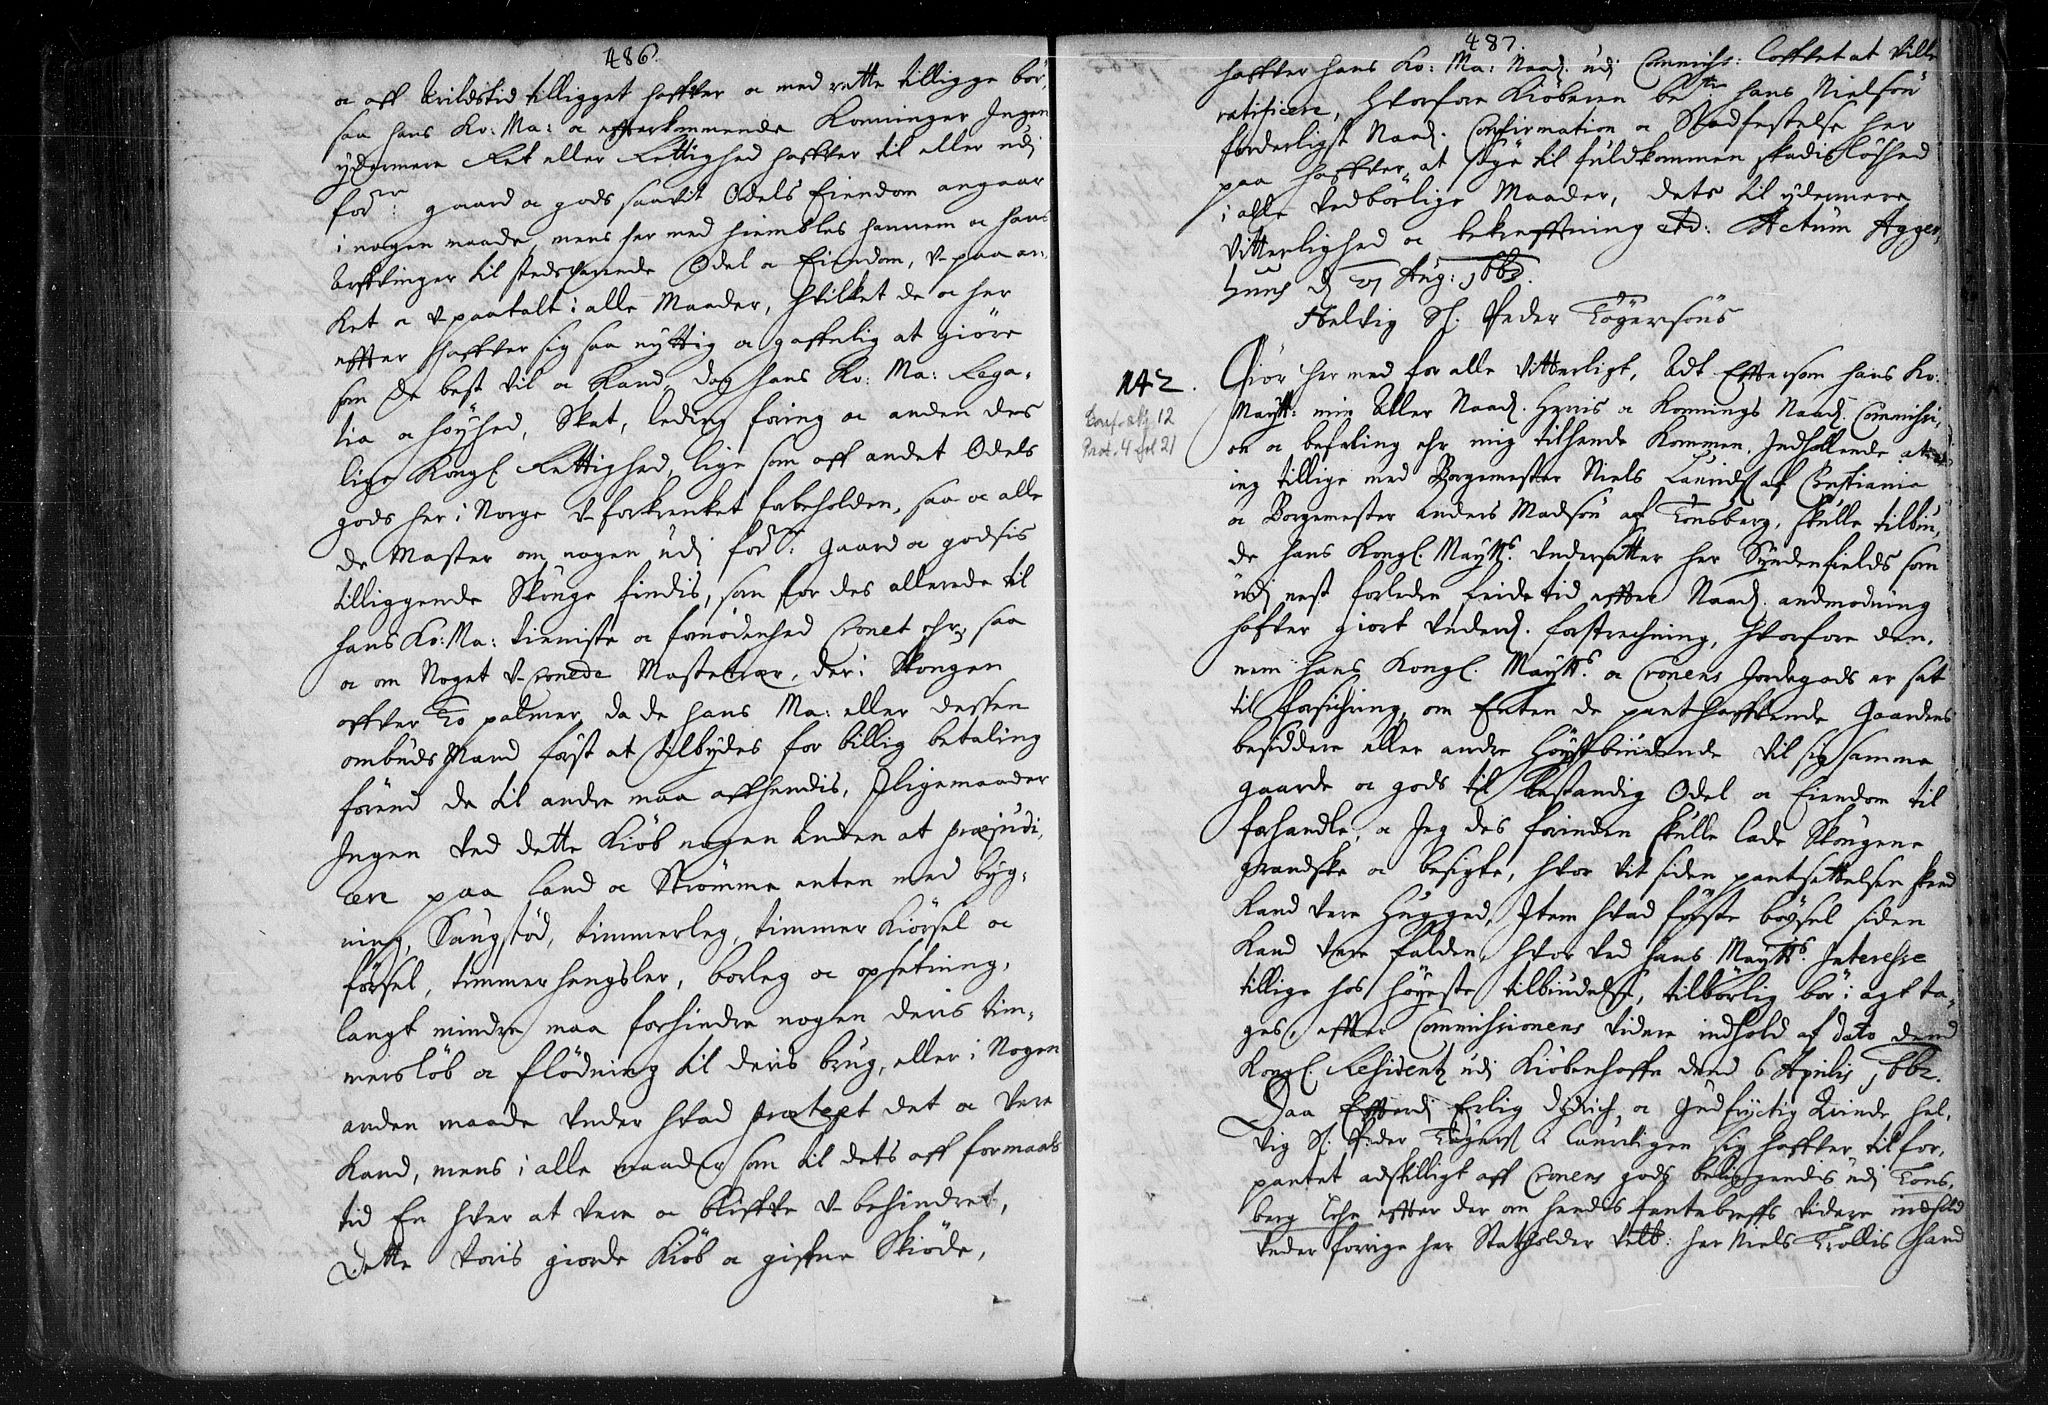 486.
oc aff Arildstid tilligget haffver oc med rette tilligge bør,
saa hans Ko: Ma: oc efterkommende Konninger Ingen
ydermere Ret eller Rettighed haffver til eller udj
forne: gaard oc gods saavit Odels Eiendom angaar
i nogen maade, mens her med hiembles hannem oc hans
Arffvinger til stedsvarende Odel oc Eiendom, v-paaan-
ket oc v-paatalt i alle Maader, hvilket de oc her
effter haffver sig saa nyttig oc gaffnlig at giøre
som de best vil oc kand, dog hans Ko: Ma: Rega-
lia oc høyhed, Skat, leding foring oc anden des
lige Kongl Rettighed, lige som aff andet Odels
gods her i Norge v-forkrenket forbeholden, saa oc alle
de Master om nogen udj forne: gaard oc godsis
tilliggende Skouge findis, som for des allerede til
hans Ko: Ma: tieniste oc fornødenhed Cronet ehr, saa
oc om Noget v-cronede Mastetrær, der i Skougen
offver To palmer, da de hans Ma: eller dessen
ombuds Mand først at tilbydes for billig betaling
førend de til andre maa affhendis, I ligemaader
Ingen ved dette Kiøb nogen Anden at præjudi,
cere paa Land oc Strømme enten med byg-
ning, Saugstød, timmerleg, timmer Kiørsel oc
førsel, timmerhengsler, borleg oc opsetning,
langt mindre maa forhindre nogen deris tim-
merløb oc flødning til deris brug, eller i Nogen
anden maade under hvad prætext det oc vere
kand, mens i alle maader som til dets aff formaals
tid En hver at vere oc bliffve v-behindret,
Dette voris giorde Kiøb oc giffne Skiøde,
487.
haffver hans Ko: Ma: Naad: udj Commiss: loffvet at ville
ratificere, hvorfore Kiøberen bete hans Nielsøn
forderligst Naad: Confirmation oc Stadfestelse her
paa haffver at søge til fuldkommen skadisløshed
i alle Vedbørlige Maader, dets til ydermere
Vitterlighed oc bekrefftning etc: Actum Agger,
huus d 27 Aug: 1662.
Helvig Sl. Peder Tøgersøns
142.
Conf. alf. 12
Prot. 4 fol 21
Giør her med for alle vitterligt, At Effterson hans Ko:
Maytt: min Aller Naad. Herris oc Konnings Naad. Commissi,
on oc befaling ehr mig tilhende kommen, Indhollende at
ieg tillige med Borgemester Niels Lauridsl af Christiania
oc Borgemester Anders Madsøn af Tønsberg, skulle tilbiu,
de hans Kongl. Maytts. Undersatter her Syndenfields som
udj nest forleden feide tid effter Naad. anmodning
hafver giort Underd. forstrechning, hvorfore den,
nem hans Kongl. Maytts. oc Cronens Jordegods er sat
til forsichring, om Enten de panthaffvende Gaardens
besiddere eller andre høystbiudende vil sig samme
gaarde oc gods til bestandig Odel oc Eiendom til
forhandle, oc Jeg des forinden skulle lade Skougene
grandske oc besigte, hvor vit siden pantsettelsen skeed
kand vere hugged, Item hvad første bøxsel siden
kand vere falden, hvor ved hans Maytts. Interesse
tillige hos høyeste tilbiudelse, tilbørlig bør i agt ta,
ges, effter Commissionens videre indhold af dato dend
Kongl. Residentz udj Kiøbenhaffn dend 6 Aprilis 1662.
Saa Effterdj Erlig dydrich, oc Gudfryctig Qvinde Hel,
vig Sl: Peder Tøgersl i Laurvigen sig haffver til for,
pantet adskilligt aff Cronens gods beliggendis udj Tons,
berg Lehn effter der om hendis Rentebreffs videre indhold
Under forrige her Statholder velb: her Niels Trollis haand